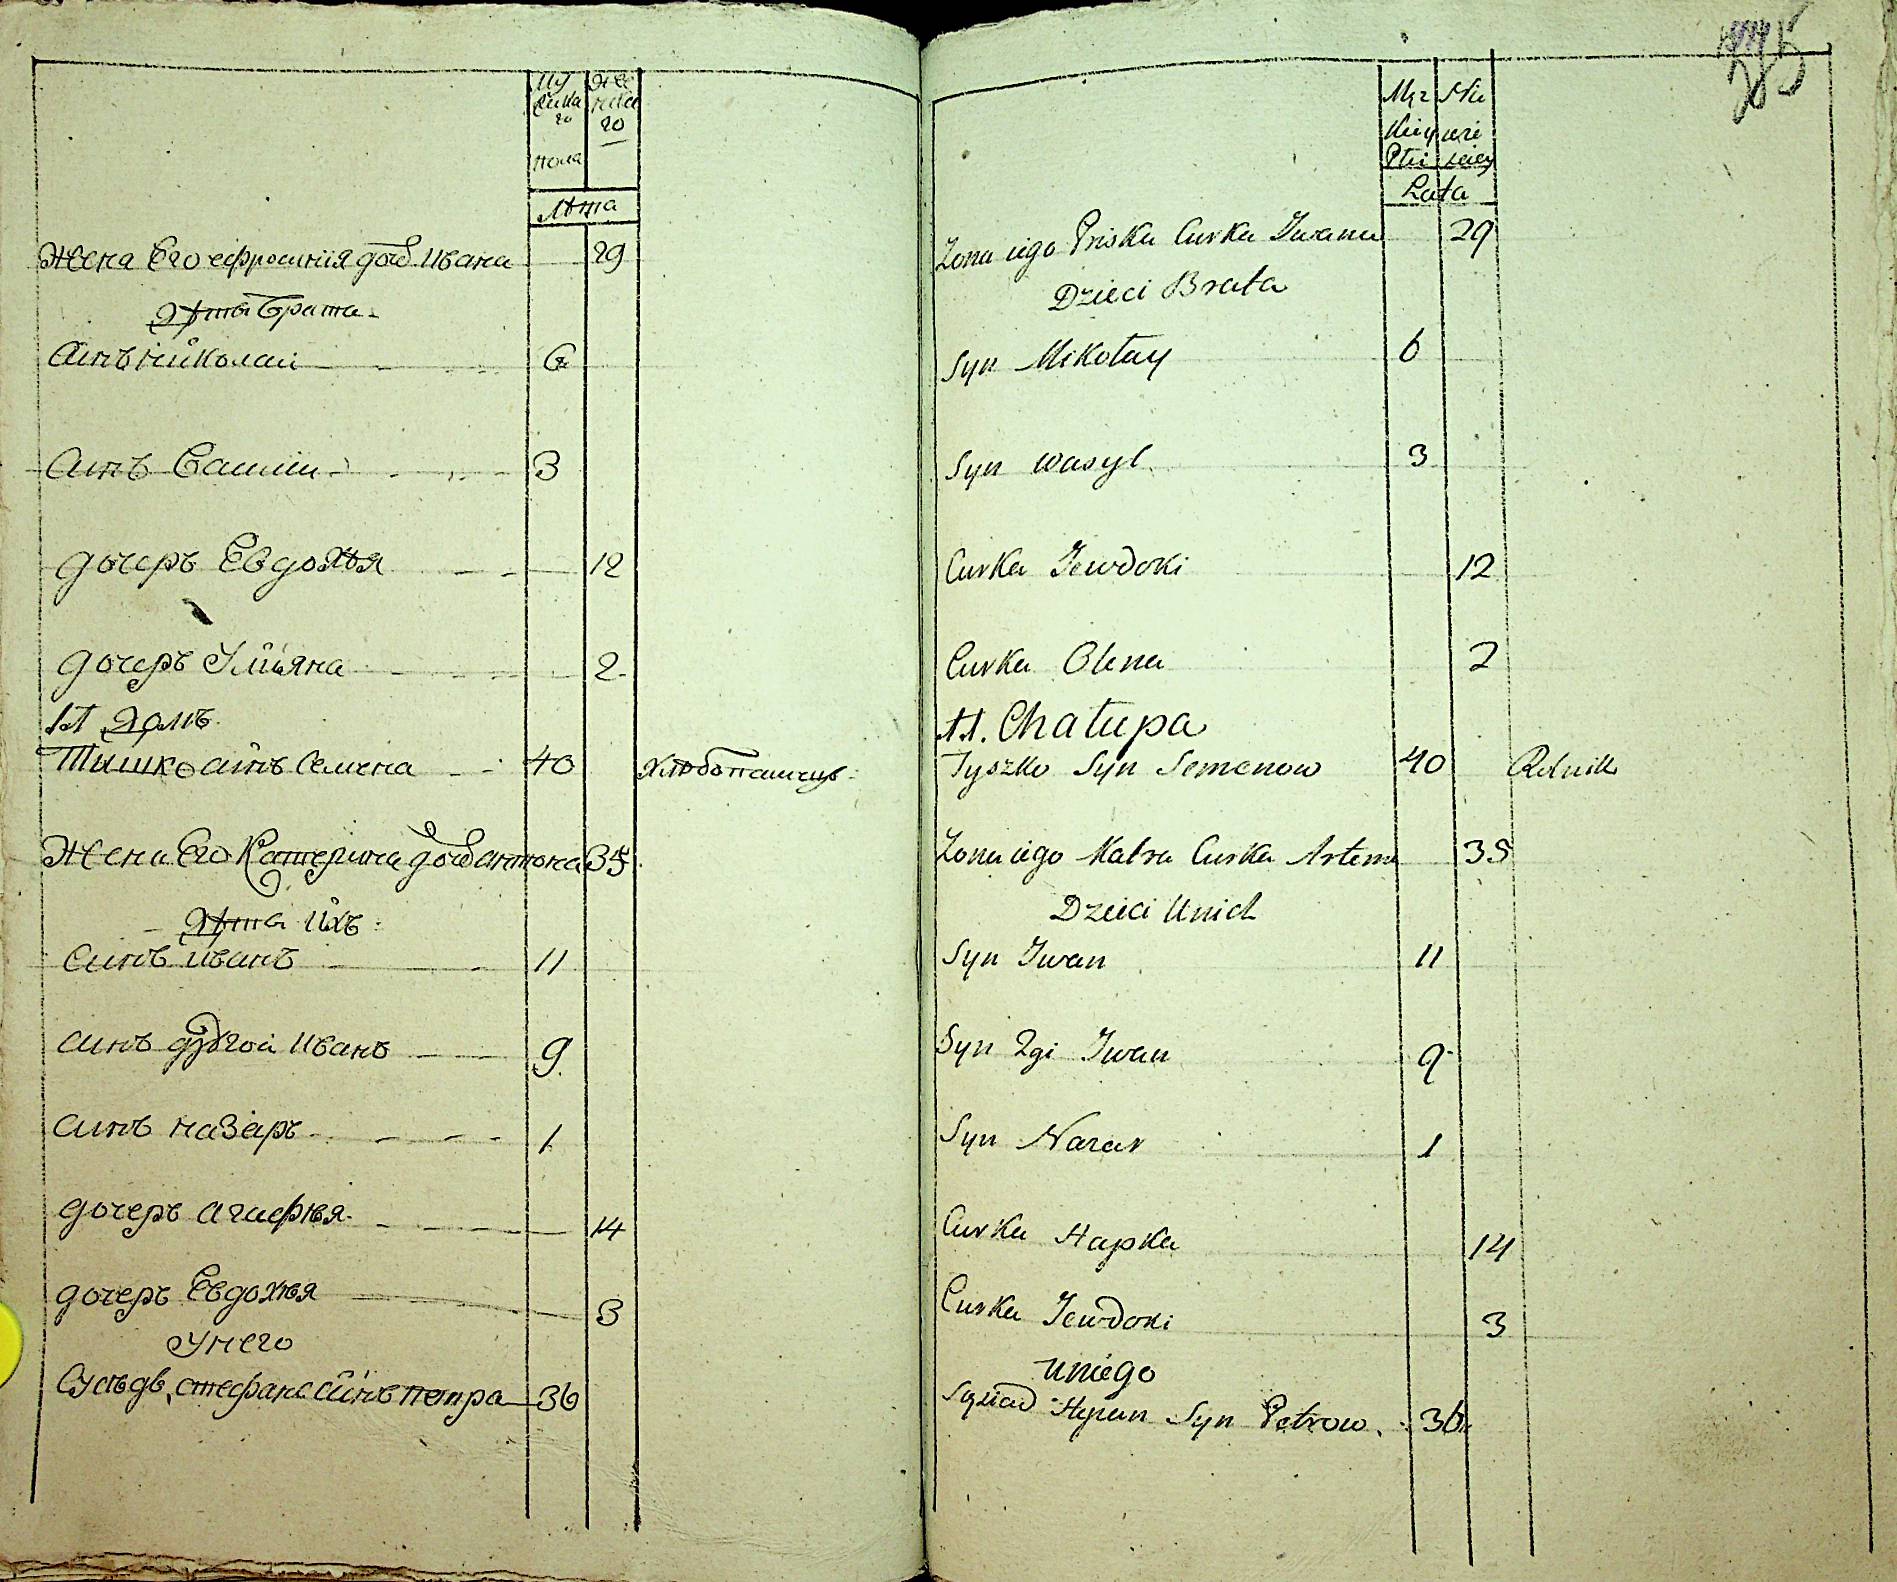 Му Же
жска нска
го го
пола
Лѣта
Жена Его ефросинія дочь Ивана 29
Дѣти брата
Синъ николаи 6
Синъ Василіи 3
дочеръ Евдокѣя 12
дочеръ Улияна 2
11 Домъ
Тишко синъ Семена 40 Хлѣбопашецъ
Жена Его Катерина дочь антона 35
Дѣти ихъ
Синъ иванъ 11
Синъ другой иванъ 9
Синъ назаръ 1
дочеръ агафѣя 14
дочеръ Евдокѣя 3
У него
Сусѣдъ стефанъ синъ петра 36
285
Męz Nie
Kiey wei
Płci sciey
Lata
Zona iego Priska Curka Iwana 29
Dzieci Brata
Syn Mikołay 6
Syn wasyl 3
Curka Jewdoki 12
Curka Olena 2
11. Chałupa
Tyszko Syn Semenow 40 Rolnik
Zona iego Katra Curka Artema 35
Dzieci Unich
Syn Iwan 11
Syn 2gi Iwan 9
Syn Nazar 1
Curka Hapka 14
Curka Jewdoki 3
uniego
Sąsiad Stepan Syn Petrow 36